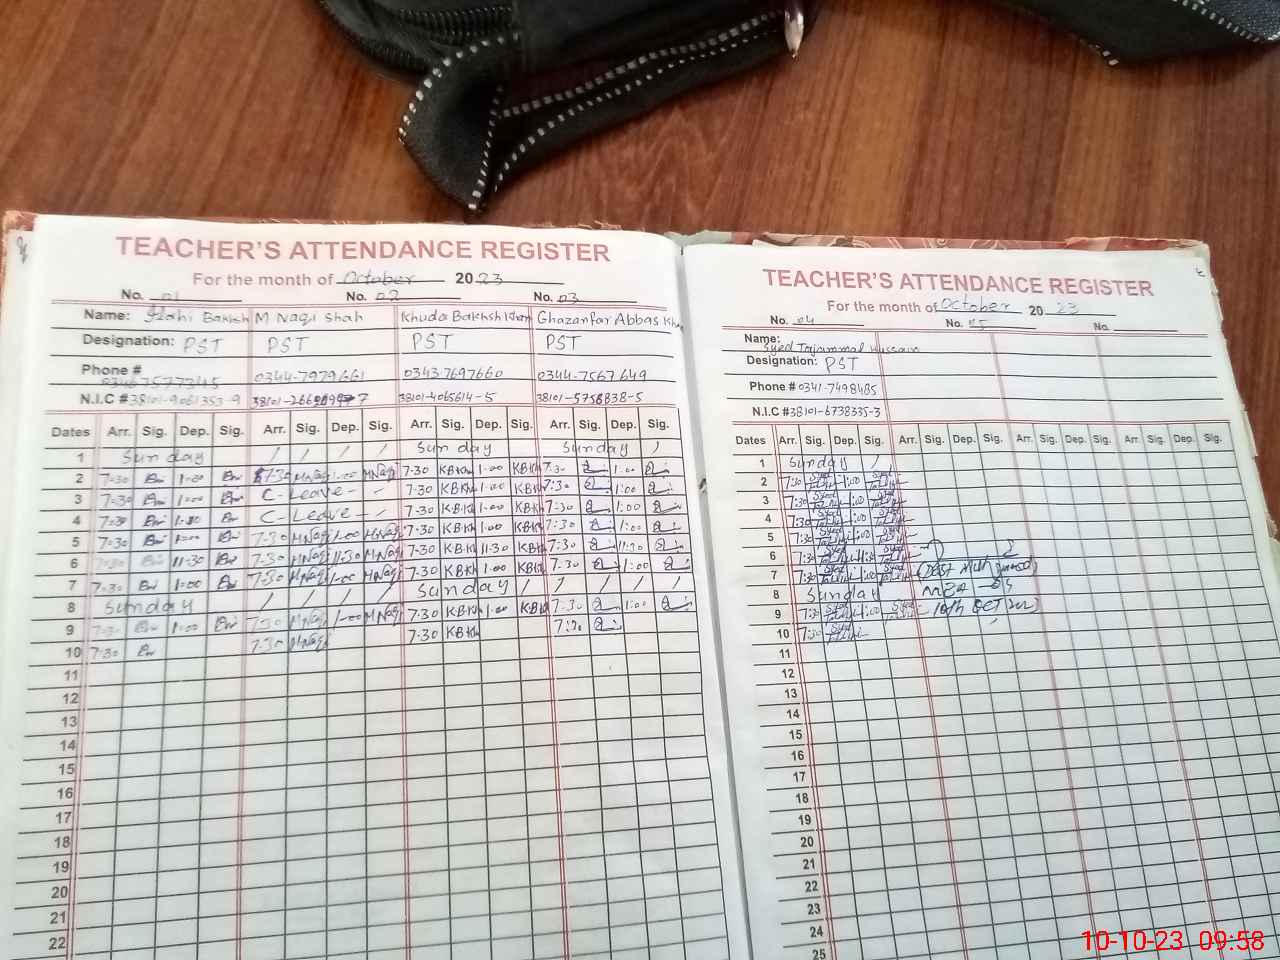 TEACHER'S ATTENDANCE REGISTER
For the month of October 2023
No. 01 No. 02 No. 03
Name: Ilahi Bakhsh M Naqi Shah Khuda Bakhsh Khan Ghazanfar Abbas Khan
Designation: PST PST PST PST
Phone # 0346 7577345 0344-7979661 0343-7697660 0344-7567649
N.I.C # 38101-9061353-9 38101-4065614-5 38101-5756838-5
Dates Arr. Sig. Dep. Sig. Arr. Sig. Dep. Sig. Arr. Sig. Dep. Sig. Arr. Sig. Dep. Sig.
1 Sunday / / / / Sunday Sunday /
2 7:30 1:00 7:30 MNaqi 1:00 MNaqi 7:30 KBKh 1:00 KBKh 7:30 1:00
3 7:30 1:00 C-Leave - 7:30 KBKh 1:00 KBKh 7:30 1:00
4 7:30 1:00 C-Leave - 7:30 KBKh 1:00 KBKh 7:30 1:00
5 7:30 1:00 7:30 MNaqi 1:00 MNaqi 7:30 KBKh 1:00 KBKh 7:30 1:00
6 7:30 11:30 7:30 MNaqi 11:30 MNaqi 7:30 KBKh 11:30 KBKh 7:30 11:30
7 7:30 1:00 7:30 MNaqi 1:00 MNaqi 7:30 KBKh 1:00 KBKh 7:30 1:00
8 Sunday / / / / Sunday / / / / /
9 7:30 1:00 7:30 MNaqi 1:00 MNaqi 7:30 KBKh 1:00 KBKh 7:30 1:00
10 7:30 7:30 MNaqi 7:30 KBKh 7:30
11
12
13
14
15
16
17
18
19
20
21
22
TEACHER'S ATTENDANCE REGISTER
For the month of October 2023
No. 04 No. 05 No.
Name: Syed Tajammal Hussain
Designation: PST
Phone # 0341-7498485
N.I.C # 38101-6738335-3
Dates Arr. Sig. Dep. Sig. Arr. Sig. Dep. Sig. Arr. Sig. Dep. Sig. Arr. Sig. Dep. Sig.
1 Sunday /
2 7:30 Syed 1:00 Syed
3 7:30 Syed 1:00 Syed
4 7:30 Syed 1:00 Syed
5 7:30 Syed 1:00 Syed
6 7:30 Syed 11:30 Syed
7 7:30 Syed 1:00 Syed
8 Sunday
9 7:30 Syed 1:00 Syed 10th OCT
10 7:30 Syed
11
12
13
14
15
16
17
18
19
20
21
22
23
24
25
10-10-23 09:58